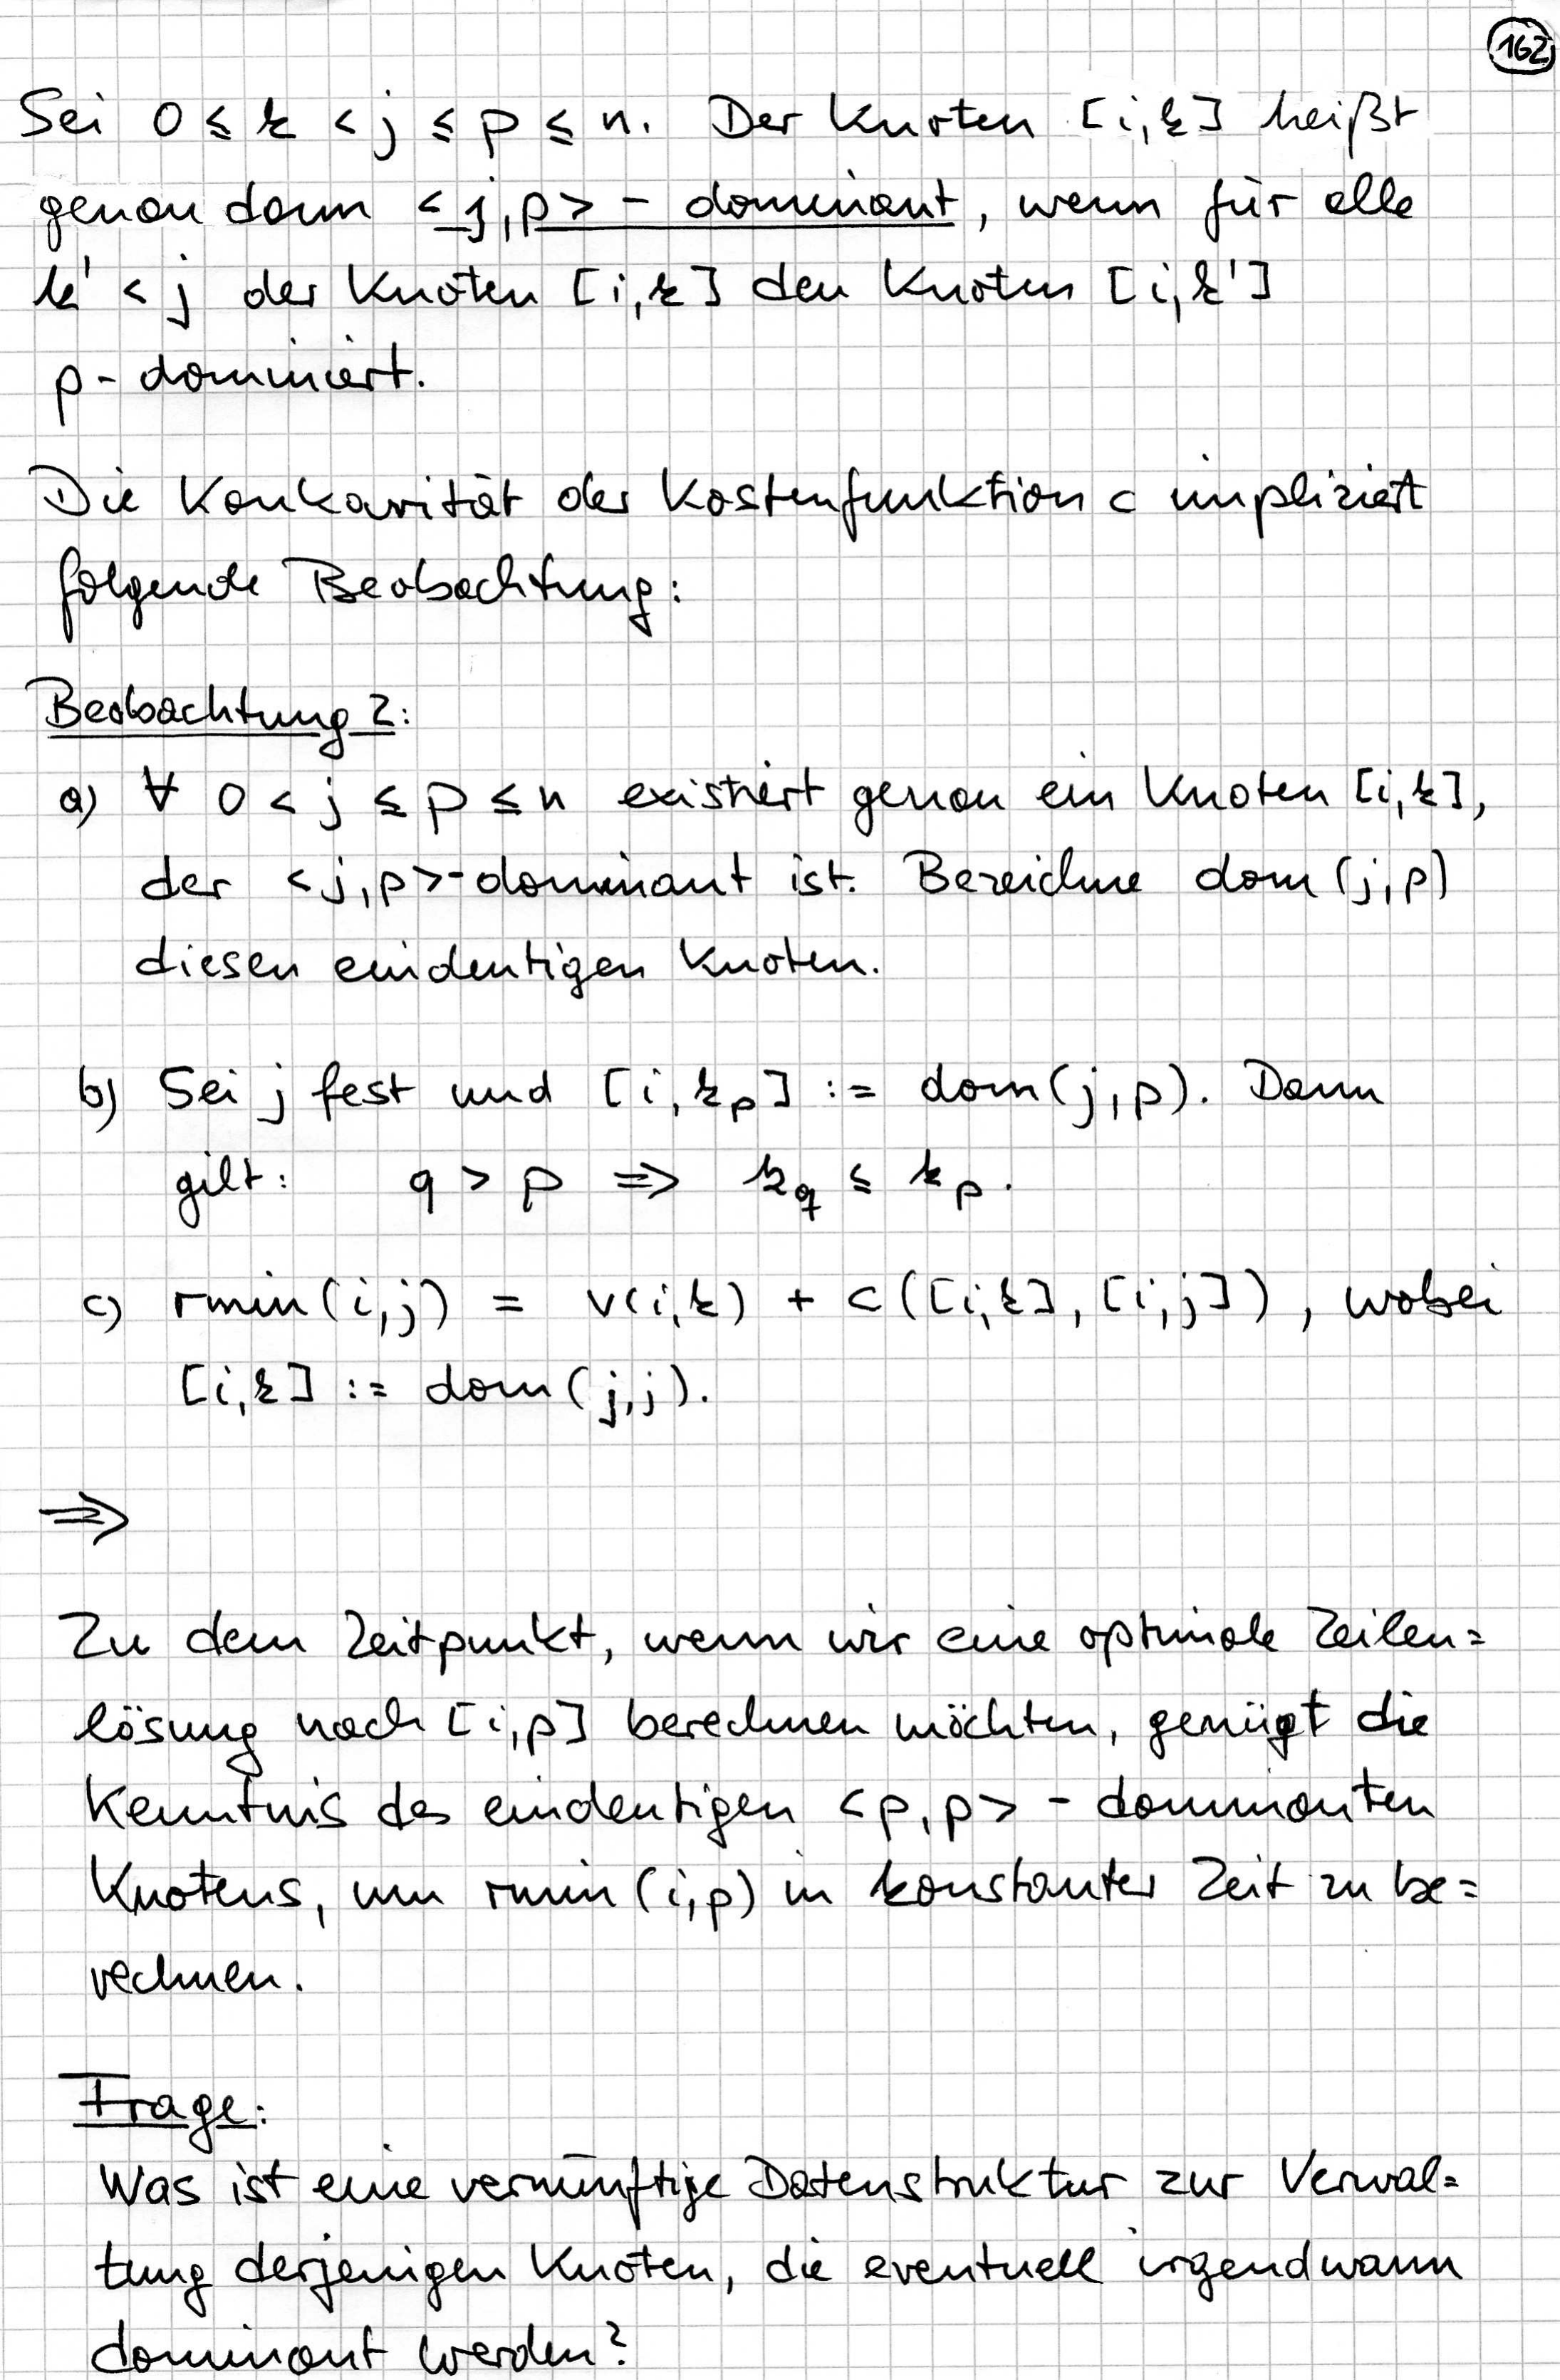 162
Sei 0 ≤ k < j ≤ p ≤ n. Der Knoten [i,k] heißt
genau dann <j,p> - dominant, wenn für alle
k' < j der Knoten [i,k] den Knoten [i,k']
p - dominiert.
Die Konkavität der Kostenfunktion c impliziert
folgende Beobachtung:
Beobachtung 2:
a) ∀ 0 < j ≤ p ≤ n existiert genau ein Knoten [i,k],
der <j,p>-dominant ist. Bezeichne dom(j,p)
diesen eindeutigen Knoten.
b) Sei j fest und [i,k_p] := dom(j,p). Dann
gilt: q > p ⇒ k_q ≤ k_p.
c) rmin(i,j) = v(i,k) + c([i,k],[i,j]), wobei
[i,k] := dom(j,j).
⇒
Zu dem Zeitpunkt, wenn wir eine optimale Zeilen=
lösung nach [i,p] berechnen möchten, genügt die
Kenntnis des eindeutigen <p,p> - dominanten
Knotens, um rmin(i,p) in konstanter Zeit zu be=
rechnen.
Frage:
Was ist eine vernünftige Datenstruktur zur Verwal=
tung derjenigen Knoten, die eventuell irgendwann
dominant werden?